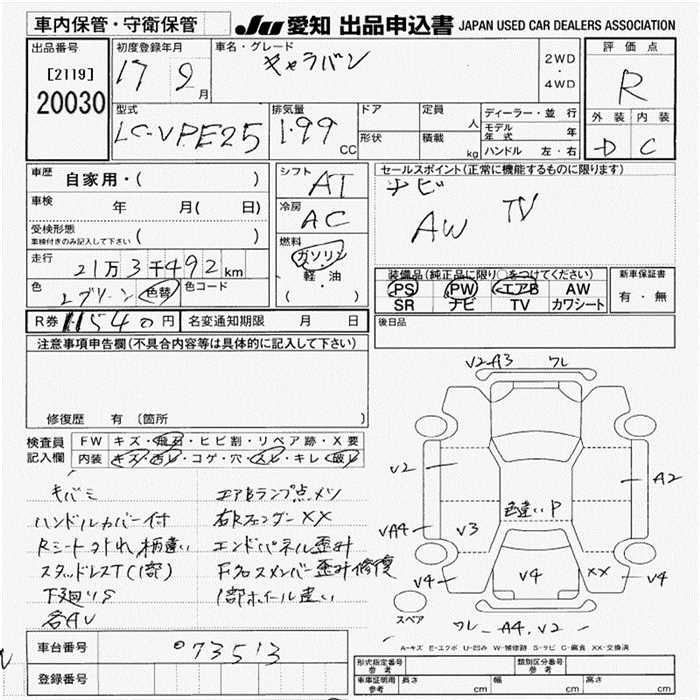 車内保管・守衛保管
JU 愛知 出品申込書 JAPAN USED CAR DEALERS ASSOCIATION
出品番号
[2119]
20030
初度登録年月
17 9月
車名・グレード
キャラバン
2WD
・
4WD
評価点
R
外装 内装
D C
型式
LC-VPE25
排気量
1.99 CC
ドア
形状
定員 人
積載 kg
ディーラー・並行
モデル年式 年
ハンドル 左・右
車歴 自家用・( )
車検 年 月( 日)
受検形態
車検付きのみ記入して下さい ( )
走行 21万3千492km
色 Lグリーン 色替 色コード
R券 11540円 名変通知期限 月 日
シフト
AT
冷房
AC
燃料
ガソリン
軽・油
( )
セールスポイント(正常に機能するものに限ります)
ナビ
AW TV
装備品(純正品に限り○をつけてください)
PS PW エアB AW
SR ナビ TV カワシート
新車保証書
有・無
後日品
注意事項申告欄(不具合内容等は具体的に記入して下さい)
修復歴 有 (箇所 )
検査員記入欄
FW キズ・飛石・ヒビ割・リペア跡・X要
内装 キズ・汚レ・コゲ・穴・スレ・キレ・破レ
キバミ
ハンドルカバー付
Rシートヨゴれ,柄違い
スタッドレスT(1部)
下廻りS
各AV
エアBランプ点メツ
右RフェンダーXX
エンドパネル歪ｵﾅ
Fクロスメンバー歪ｵﾅ修復
1部ホイール違い
V2-A3 ワレ
V2
A2
VA4
V3
色違いP
VA4
V4
V4
XX
V4
スペア
ワレ-A4.V2-
A-キズ E-エクボ U-凹み W-補修跡 S-サビ C-腐食 XX-交換済
車台番号 073513
登録番号
形式指定番号
参考
類別区分番号
参考
車庫証明用
参考
長さ cm
幅 cm
高さ cm